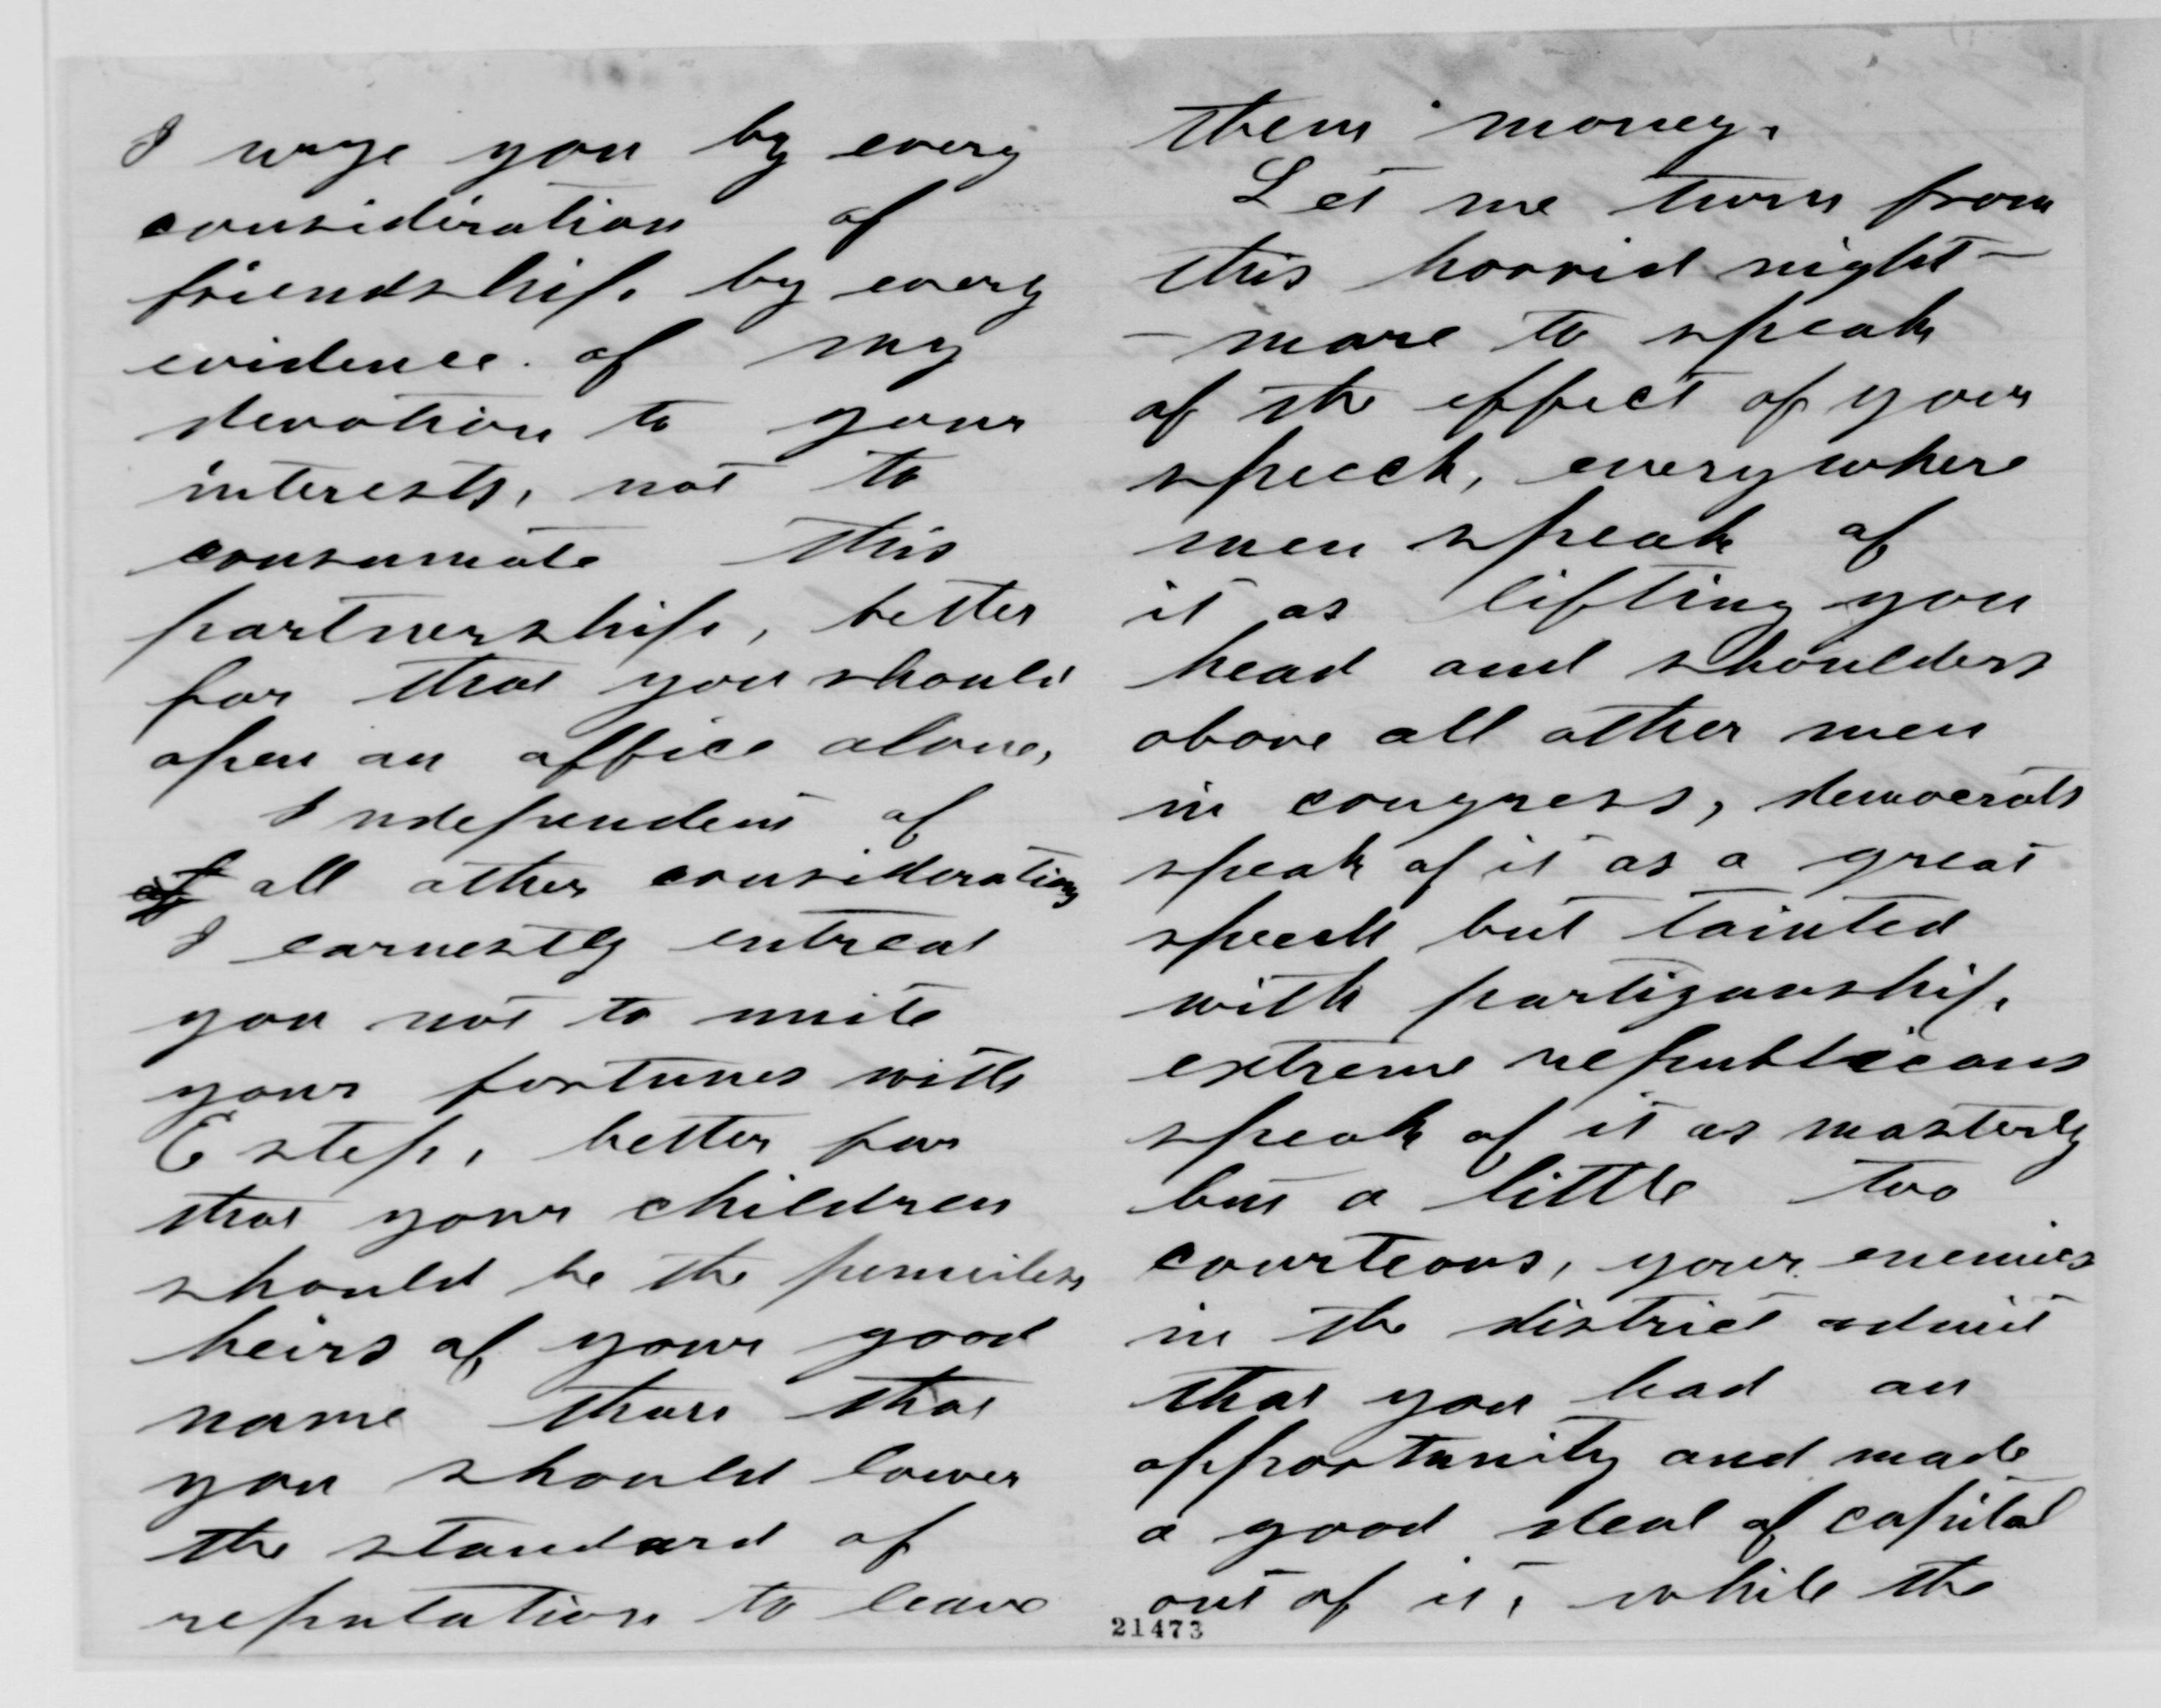 I urge you by every
consideration of
friendship. by every
evidence. of my
devotion to your
interests, not to
consumate this
partnership, better
far that you should
open an office alone,
Independent of
of all other considerations
I earnestly entreat
you not to unite
your fortunes with
Estep, better far
that your children
should be the penniless
heirs of your good
name than that
you should lower
the standard of
reputation to leave
them money.
Let me turn from
this horrid night-
-mare to speak
of the effect of your
speech, everywhere
men speak of
it as lifting you
head and shoulders
above all other men
in congress, democrats
speak of it as a great
speech but tainted
with partizanship,
extreme republicans
speak of it as masterly
but a little too
courteous, your enemies
in the district admit
that you had an
opportunity and made
a good deal of capital
out of it, while the
21473